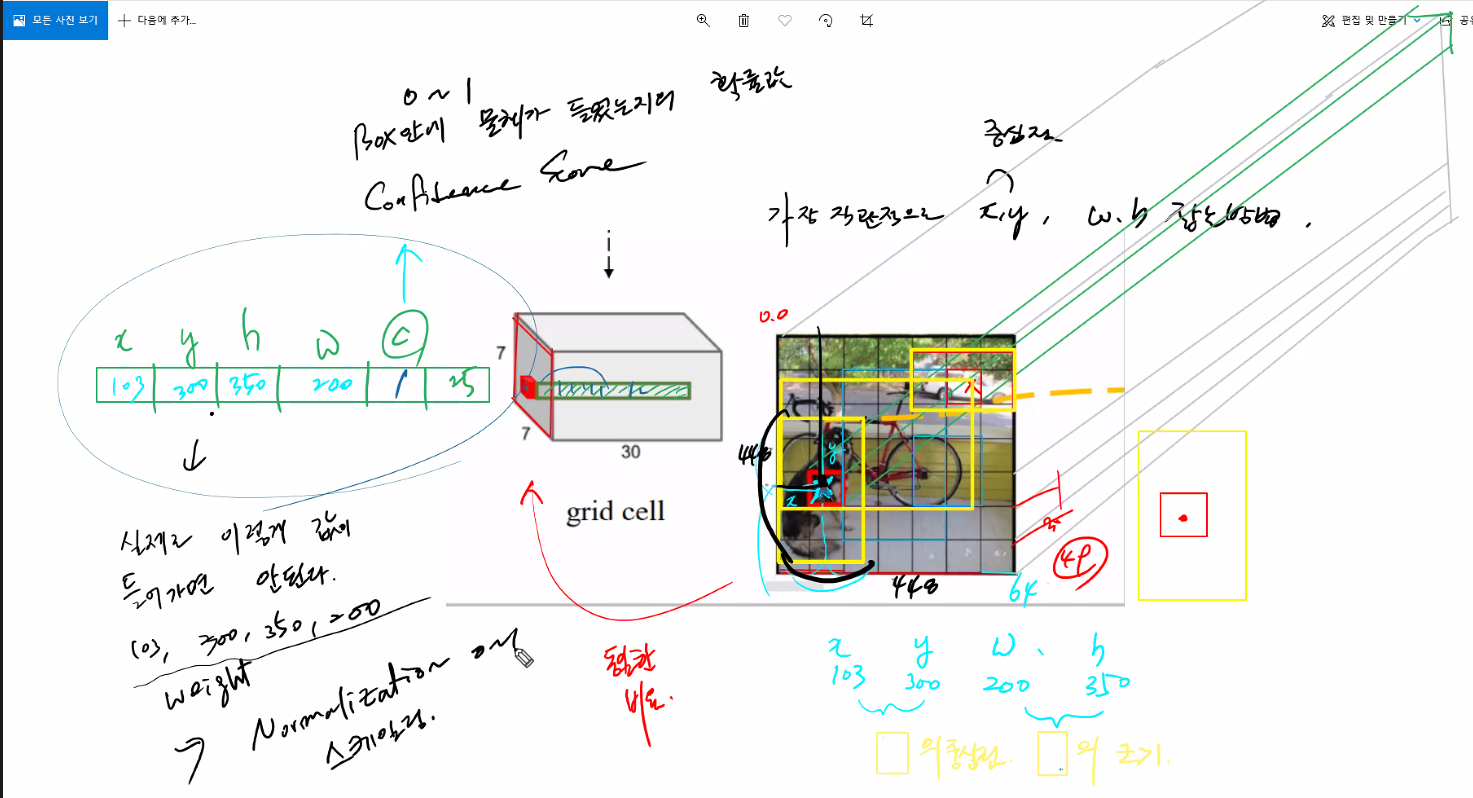 모든 사진 보기
다음에 추가...
편집 및 만들기
공유
0 ~ 1
Box안에 물체가 들었는지의 확률값
Confidence Score
중심점
가장 직관적으로 x,y, w.h 잡는방법.
x y h w C
103 300 350 200 1 25
7
7
30
grid cell
0.0
448
y
x
448
64
49
실제로 이렇게 값이
들어가면 안된다.
103, 300, 350, 200
weight
Normalization 0~
스케일링.
동일한
비율.
x y w、 h
103 300 200 350
의 중심점. 의 크기.